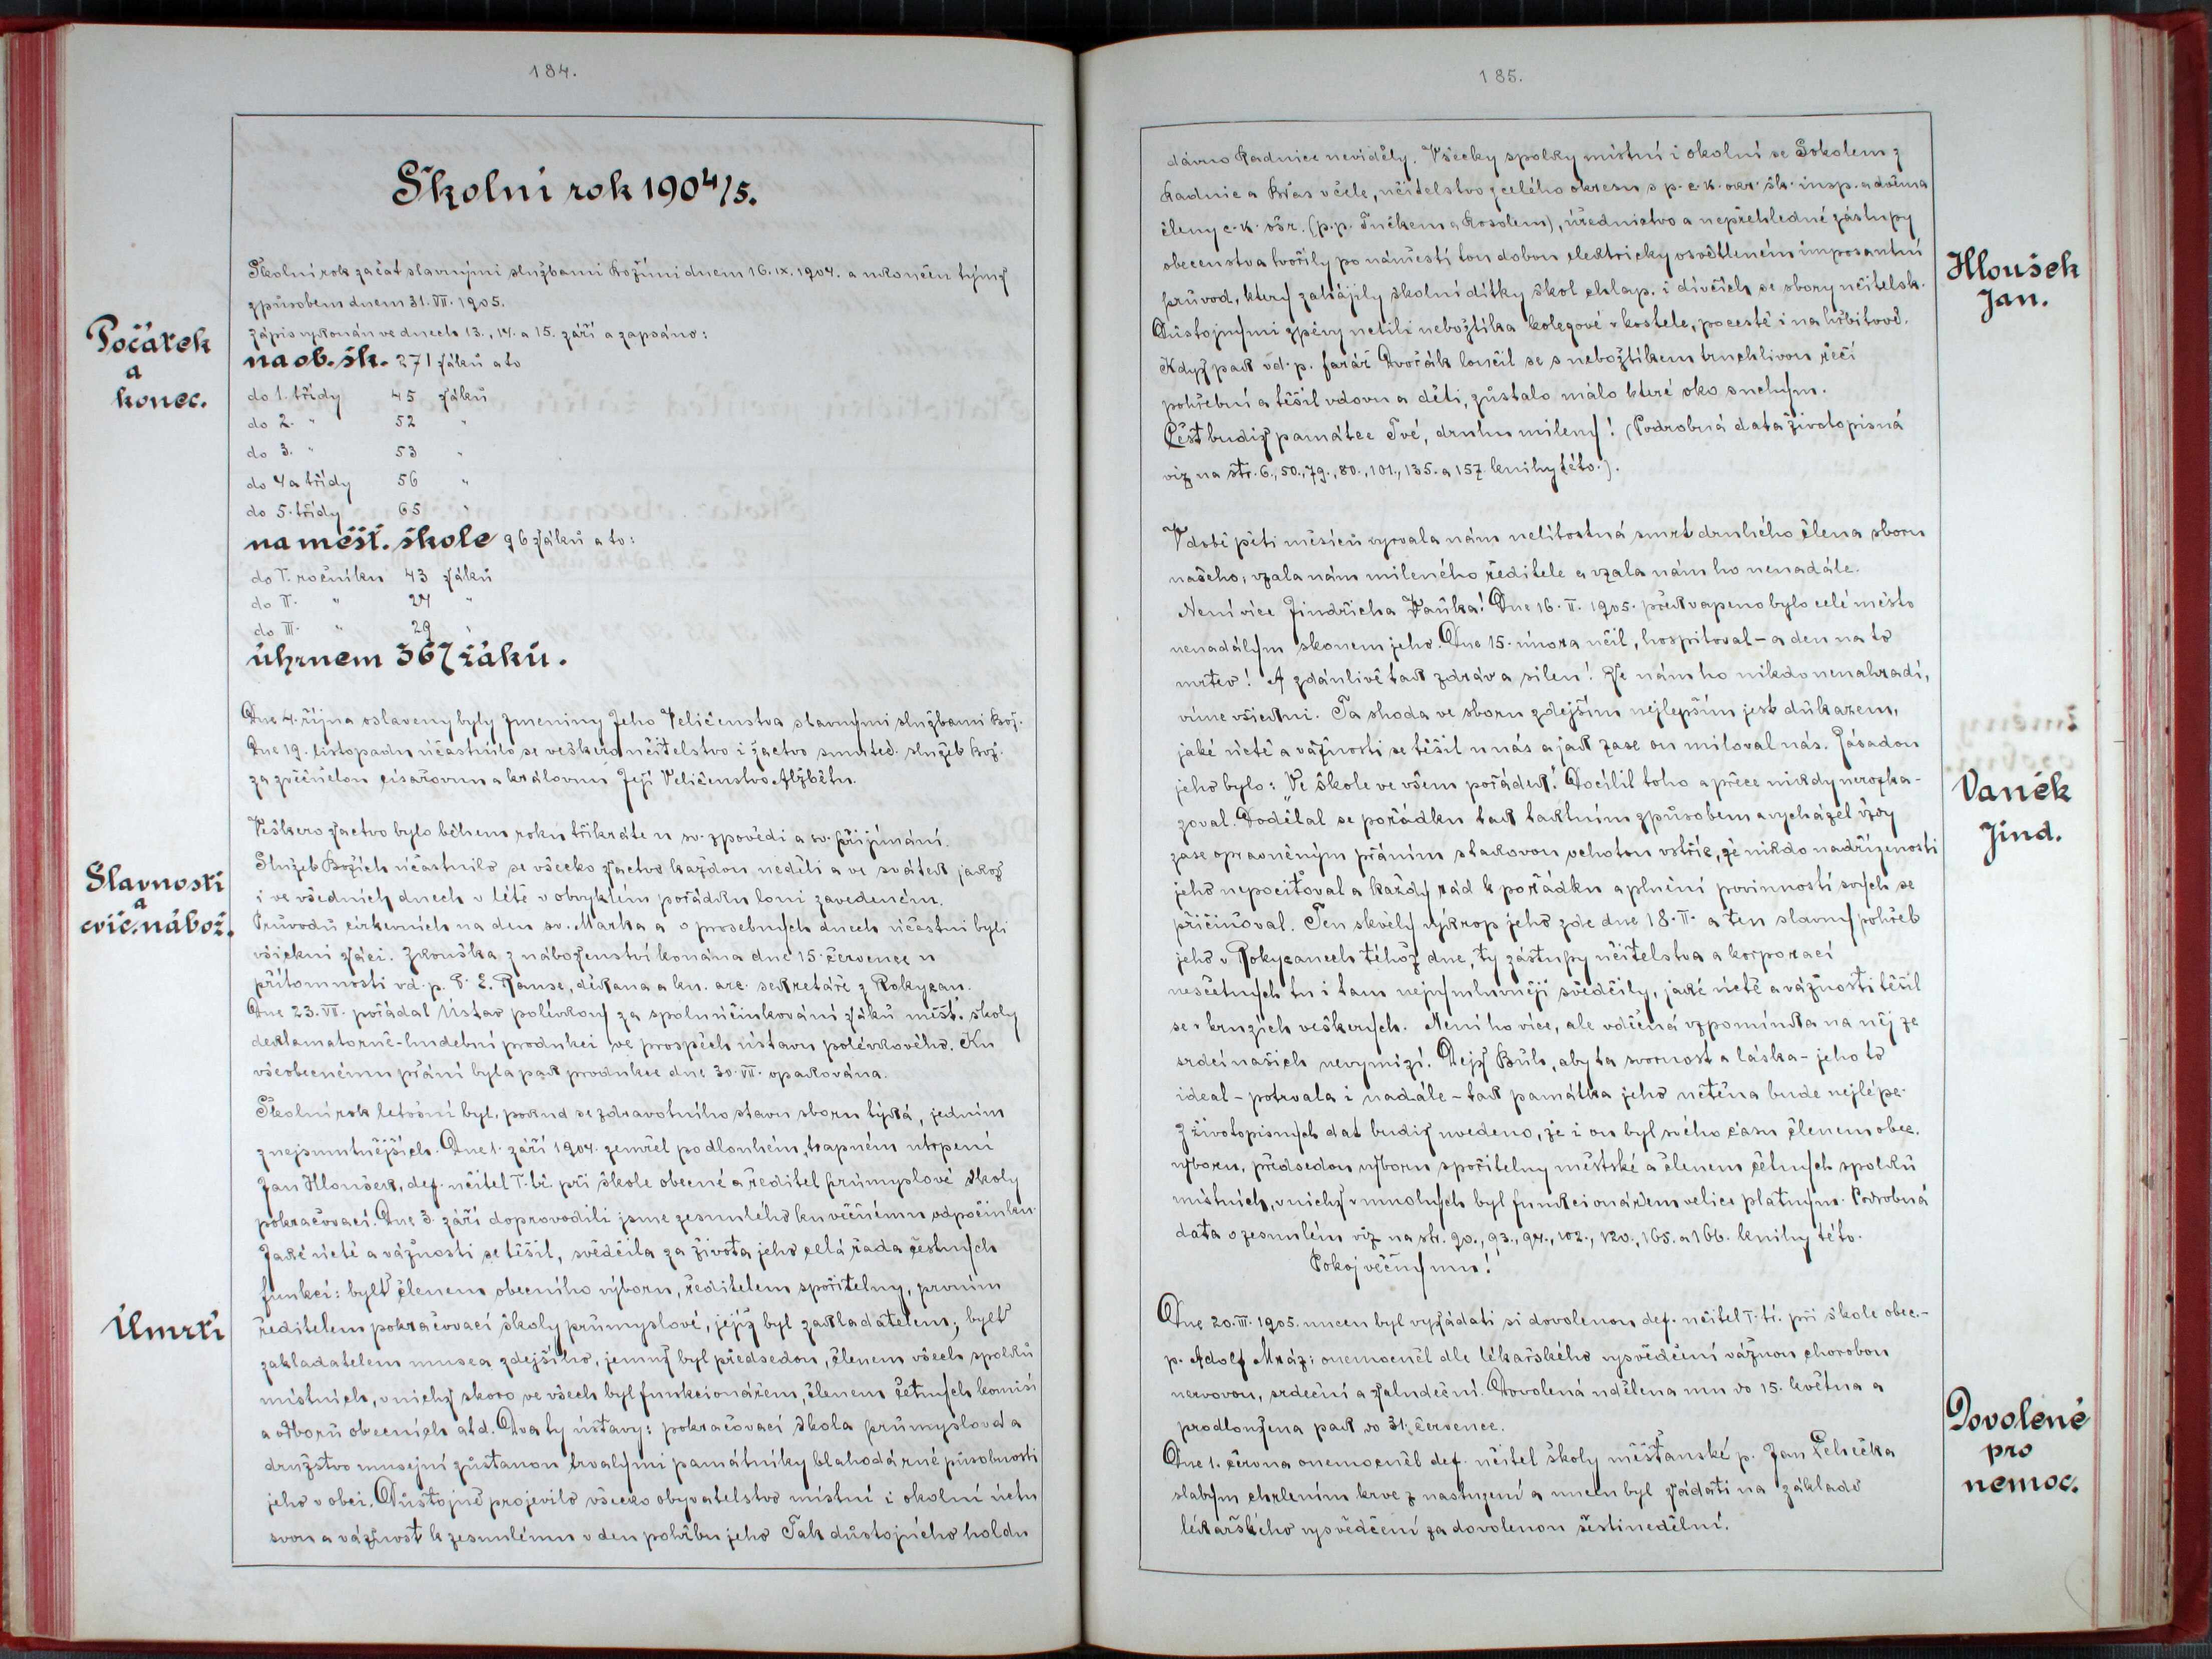 184.
Školní rok 1904/5.
Počátek
a
konec.
Školní rok začat slavnými službami Božími dnem 16.IX.1904. a ukončen týmž
způsobem dnem 31.VII.1905.
Zápis vykonán ve dnech 13., 14. a 15. září a zapsáno:
na ob. šk. 271 žáků a to
do 1. třídy 45 žáků
do 2. " 52 "
do 3. " 53 "
do 4a třídy 56 "
do 5. třídy 65 "
na měšť. škole 96 žáků a to:
do I. ročníku 43 žáků
do II. " 24 "
do III. " 29 "
úhrnem 367 žáků.
Slavnosti
a
cvič. nábož.
Dne 4. října oslaveny byly jmeniny Jeho Veličenstva slavnými službami Bož.
Dne 19. listopadu účastnilo se veškero učitelstvo i žactvo smuteč. služeb Bož.
za zvěčnělou císařovnu a královnu Její Veličenstvo Alžbětu.
Veškero žactvo bylo během roku třikráte u sv. zpovědi a sv. přijímání.
Služeb Božích účastnilo se všecko žactvo každou neděli a ve svátek jakož
i ve všedních dnech v létě v obvyklém pořádku loni zavedeném.
Průvodů církevních na den sv. Marka a o prosebných dnech účastni byli
všickni žáci. Zkouška z náboženství konána dne 15. července u
přítomnosti vd. p. P. E. Rause, děkana a kn. arc. sekretáře z Rokycan.
Dne 23.VII. pořádal Ústav polívkový za spoluúčinkování žáků měšť. školy
deklamatorně-hudební produkci ve prospěch ústavu polévkového. Ku
všeobecnému přání byla pak produkce dne 30.VII. opakována.
Úmrtí
Školní rok letošní byl, pokud se zdravotního stavu sboru týká, jedním
z nejsmutnějších. Dne 1. září 1904. zemřel po dlouhém, trapném utrpení
Jan Hloušek, def. učitel I. tř. při škole obecné a ředitel průmyslové školy
pokračovací. Dne 3. září doprovodili jsme zesnulého ku věčnému odpočinku.
Jaké úctě a vážnosti se těšil, svědčila za života jeho celá řada čestných
funkcí: bylť členem obecního výboru, ředitelem spořitelny, prvním
ředitelem pokračovací školy průmyslové, jejíž byl zakladatelem; bylť
zakladatelem musea zdejšího, jemuž byl předsedou, členem všech spolků
místních, v nichž skoro ve všech byl funkcionářem, členem četných komisí
a odborů obecních atd. Dva ty ústavy: pokračovací škola průmyslová a
družstvo musejní zůstanou trvalými památníky blahodárné působnosti
jeho v obci. Důstojně projevilo všecko obyvatelstvo místní i okolní úctu
svou a vážnost k zesnulému v den pohřbu jeho Tak důstojného holdu
185.
Hloušek
Jan.
dávno Radnice neviděly. Všecky spolky místní i okolní se Sokolem z
Radnic a Břas v čele, učitelstvo z celého okresu s p. c.k. okr. šk. insp. a dvěma
členy c.k. ošr. (p.p. Tučkem a Kosolem), úřednictvo a nepřehledné zástupy
obecenstva tvořily po náměstí tou dobou elektricky osvětleném imposantní
průvod, který zahájily školní dítky škol chlap. i dívčích se sbory učitelsk.
Důstojnými zpěvy uctili nebožtíka kolegové v kostele, po cestě i na hřbitově.
Když pak vd. p. farář Dvořák loučil se s nebožtíkem truchlivou řečí
pohřební a těšil vdovu a děti, zůstalo málo které oko suchým.
Čest budiž památce Tvé, druhu milený! (Podrobná data životopisná
viz na str. 6., 50., 79., 80., 101., 135. a 157. knihy této.).
Vaněk
Jind.
V době pěti měsíců vyrvala nám nelítostná smrt druhého člena sboru
našeho; vzala nám mileného ředitele a vzala nám ho nenadále.
Není více Jindřicha Vaňka! Dne 16.II.1905. překvapeno bylo celé město
nenadálým skonem jeho. Dne 15. února učil, hospitoval – a den na to
mrtev! A zdánlivě tak zdráv a silen! Že nám ho nikdo nenahradí,
víme všickni. Ta shoda ve sboru zdejším nejlepším jest důkazem,
jaké úctě a vážnosti se těšil u nás a jak zase on miloval nás. Zásadou
jeho bylo: "Ve škole ve všem pořádek!" Docílil toho a přece nikdy nerozka-
zoval. Dodělal se pořádku tak taktním způsobem a vycházel vždy
zase oprávněným přáním takovou ochotou vstříc, že nikdo nadřízenosti
jeho nepociťoval a každý rád k pořádku a plnění povinností svých se
přičiňoval. Ten skvělý výkrop jeho zde dne 18.II. a ten slavný pohřeb
jeho v Rokycanech téhož dne, ty zástupy učitelstva a korporací
nesčetných tu i tam nejvýmluvněji svědčily, jaké úctě a vážnosti těšil
se v kruzích veškerých. Není ho více, ale vděčná vzpomínka na něj ze
srdcí našich nevymizí. Dejž Bůh, aby ta svornost a láska – jeho to
ideal – potrvala i nadále – tak památka jeho uctěna bude nejlépe.
Z životopisných dat budiž uvedeno, že i on byl svého času členem obec.
výboru, předsedou výboru spořitelny městské a členem četných spolků
místních, v nichž v mnohých byl funkcionářem velice platným. Podrobná
data o zesnulém viz na str. 90., 93., 94., 102., 120., 165. a 166. knihy této.
Pokoj věčný mu!
Dovolené
pro
nemoc.
Dne 20.III.1905. nucen byl vyžádati si dovolenou def. učitel I. tř. při škole obec.
p. Adolf Mráz; onemocněl dle lékařského vysvědčení vážnou chorobou
nervovou, srdeční a žaludeční. Dovolená udělena mu do 15. května a
prodloužena pak do 31. července.
Dne 1. června onemocněl def. učitel školy měšťanské p. Jan Čehečka
slabým chrlením krve z nastuzení a nucen byl žádati na základě
lékařského vysvědčení za dovolenou šestinedělní.